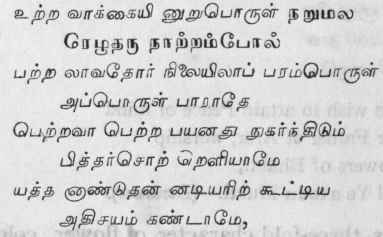 உற்ற வாக்கையி னுறுபொருள் நறுமல
ரெழுதரு நாற்றம்போல்
பற்ற லாவதோர் நிலையிலாப் பரம்பொருள்
அப்பொருள் பாராதே
பெற்றவா பெற்ற பயனது நுகர்ந்திடும்
பித்தர்சொற் றெளியாமே
யத்த னாண்டுதன் னடியரிற் கூட்டிய
அதிசயம் கண்டாமே,